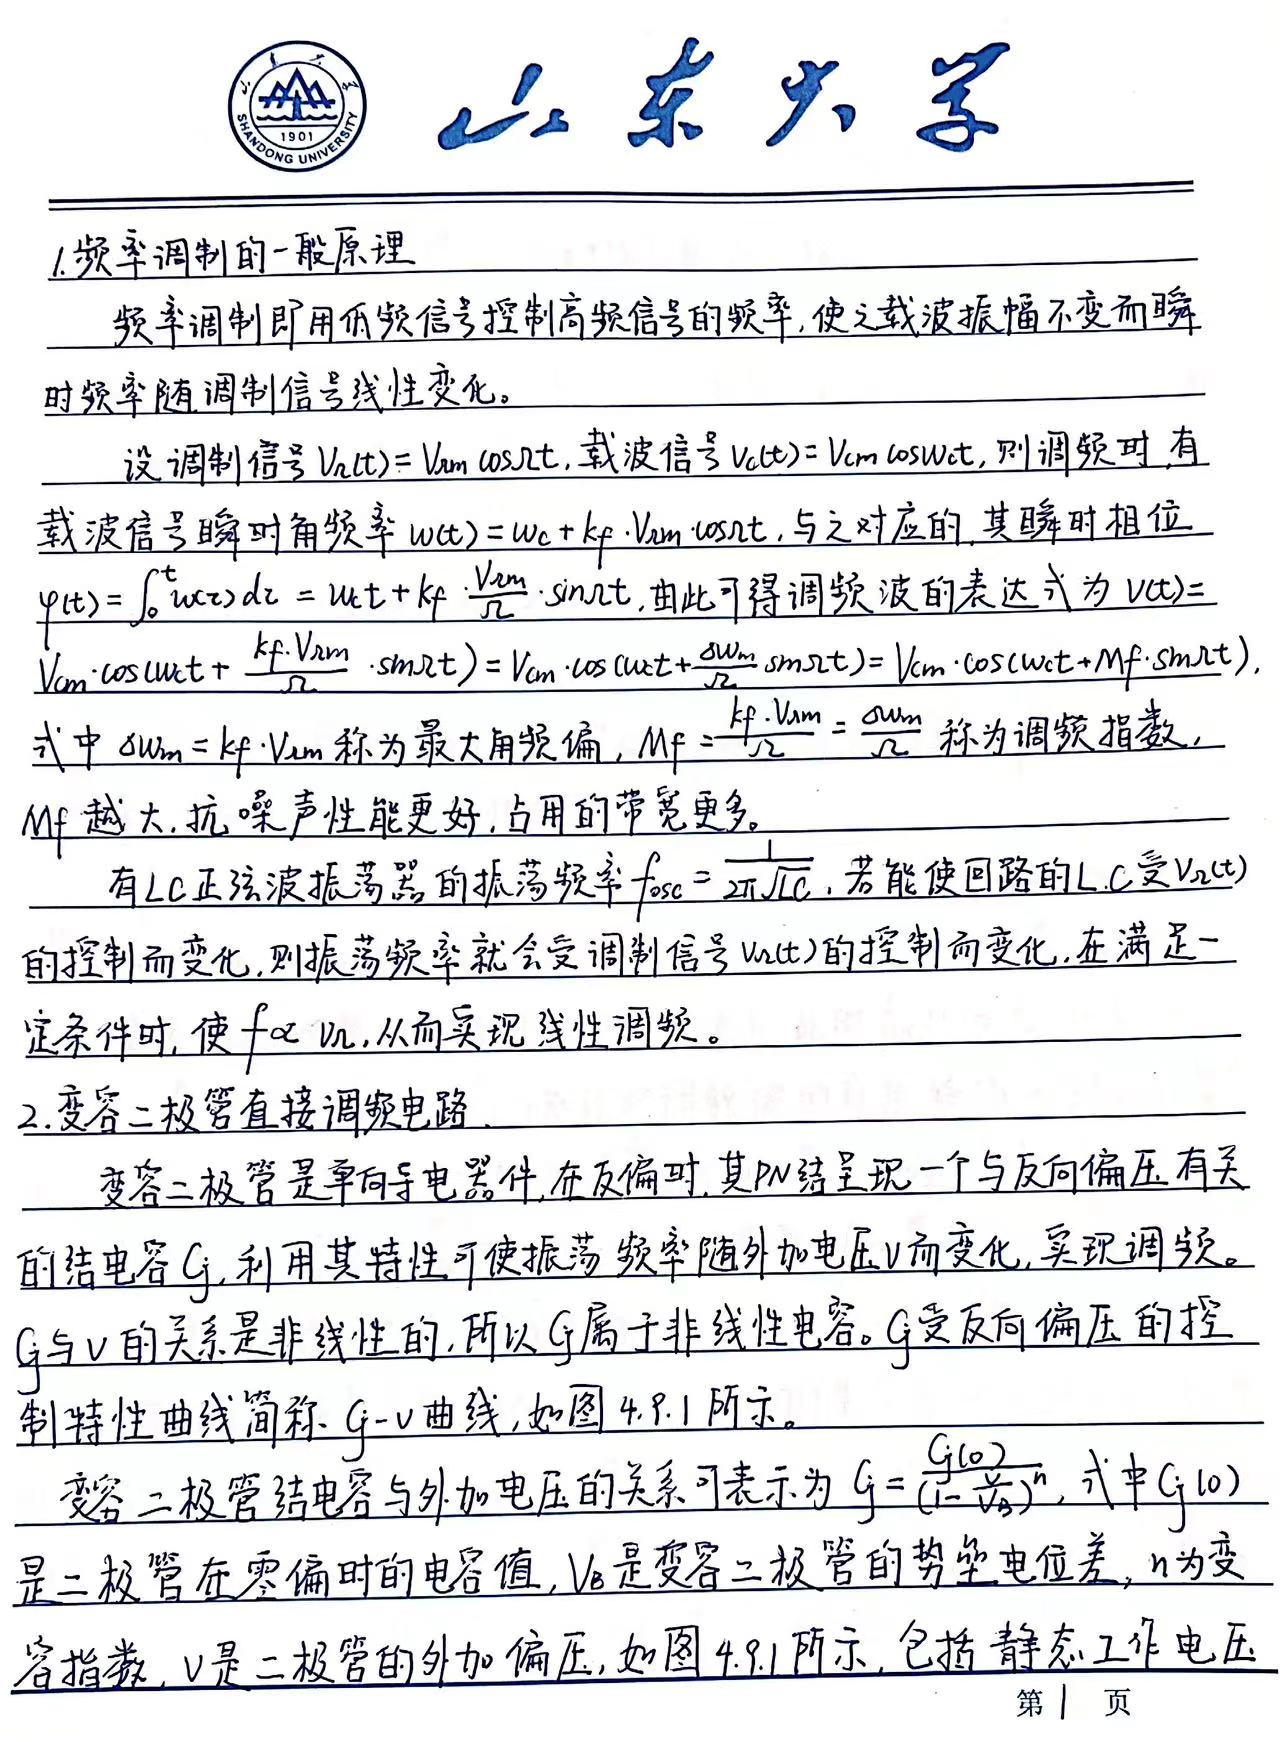 山东大学
1901
SHANDONG UNIVERSITY
1.频率调制的一般原理
频率调制即用低频信号控制高频信号的频率,使之载波振幅不变而瞬
时频率随调制信号线性变化。
设调制信号 VΩ(t)=VΩm cosΩt, 载波信号 Vc(t)=Vcm cosωct, 则调频时,有
载波信号瞬时角频率 ω(t)=ωc+kf·VΩm·cosΩt, 与之对应的,其瞬时相位
φ(t)=∫₀ᵗω(τ)dτ=ωct+kf·VΩm/Ω·sinΩt, 由此可得调频波的表达式为 V(t)=
Vcm·cos(ωct+kf·VΩm/Ω·sinΩt)=Vcm·cos(ωct+Δωm/Ω sinΩt)=Vcm·cos(ωct+Mf·sinΩt),
式中 Δωm=kf·VΩm 称为最大角频偏, Mf=kf·VΩm/Ω=Δωm/Ω 称为调频指数,
Mf 越大,抗噪声性能更好,占用的带宽更多。
有LC正弦波振荡器的振荡频率 fosc=1/2π√LC, 若能使回路的L.C受VΩ(t)
的控制而变化,则振荡频率就会受调制信号 VΩ(t)的控制而变化,在满足一
定条件时,使 f∝VΩ,从而实现线性调频。
2.变容二极管直接调频电路.
变容二极管是单向导电器件,在反偏时,其PN结呈现一个与反向偏压有关
的结电容Cj,利用其特性可使振荡频率随外加电压V而变化,实现调频。
Cj与V的关系是非线性的,所以Cj属于非线性电容。Cj受反向偏压的控
制特性曲线简称 Cj-V曲线,如图4.9.1所示。
变容二极管结电容与外加电压的关系可表示为 Cj=Cj(0)/(1-V/VB)ⁿ, 式中Cj(0)
是二极管在零偏时的电容值,VB是变容二极管的势垒电位差,n为变
容指数,V是二极管的外加偏压,如图4.9.1所示,包括静态工作电压
第1页